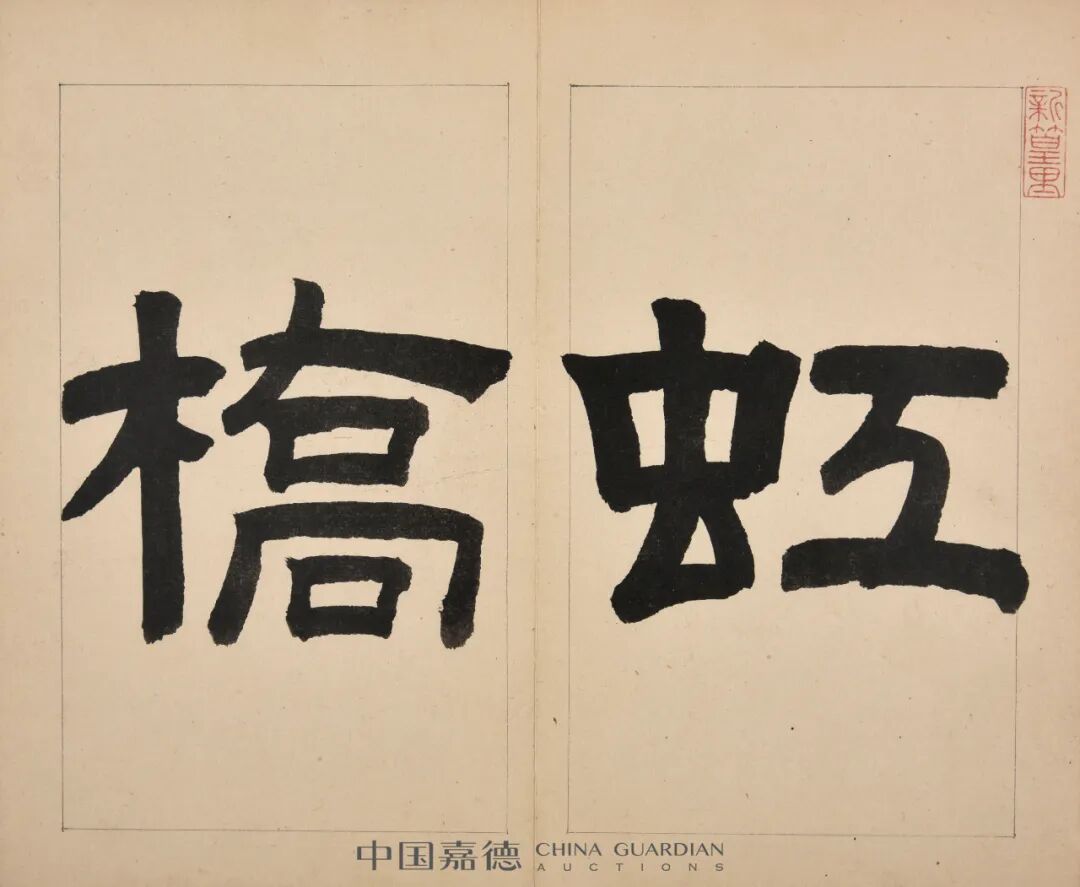 新篁里
虹槗
中国嘉德 CHINA GUARDIAN
AUCTIONS